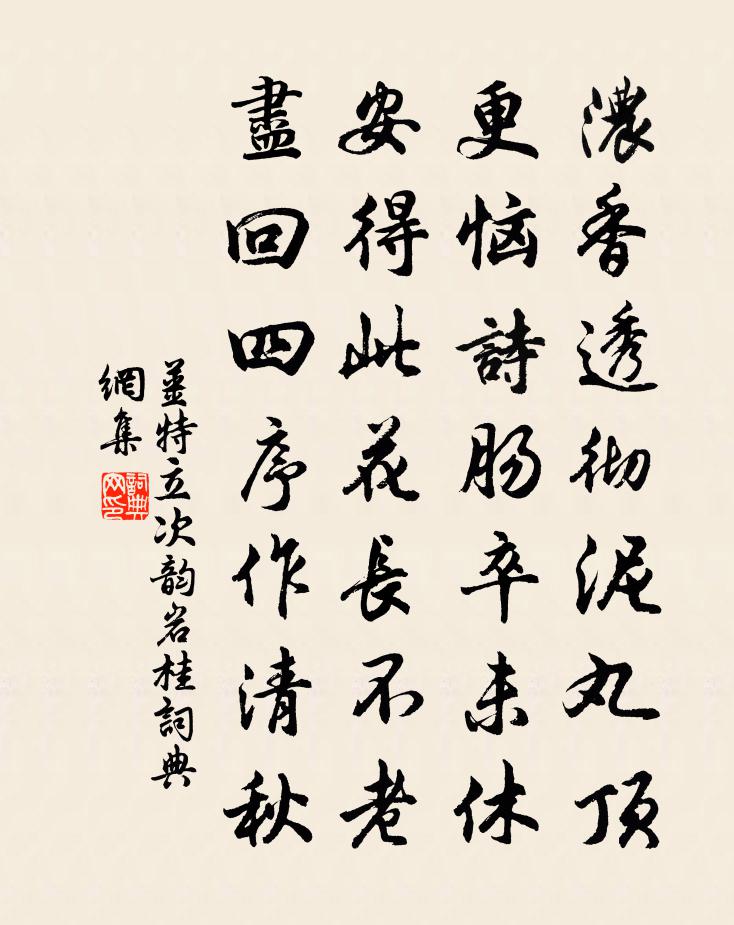 濃香透彻泥丸頂
更恼詩肠卒未休
安得此花長不老
盡回四序作清秋
姜特立次韵岩桂詞典
網集
詞典网印